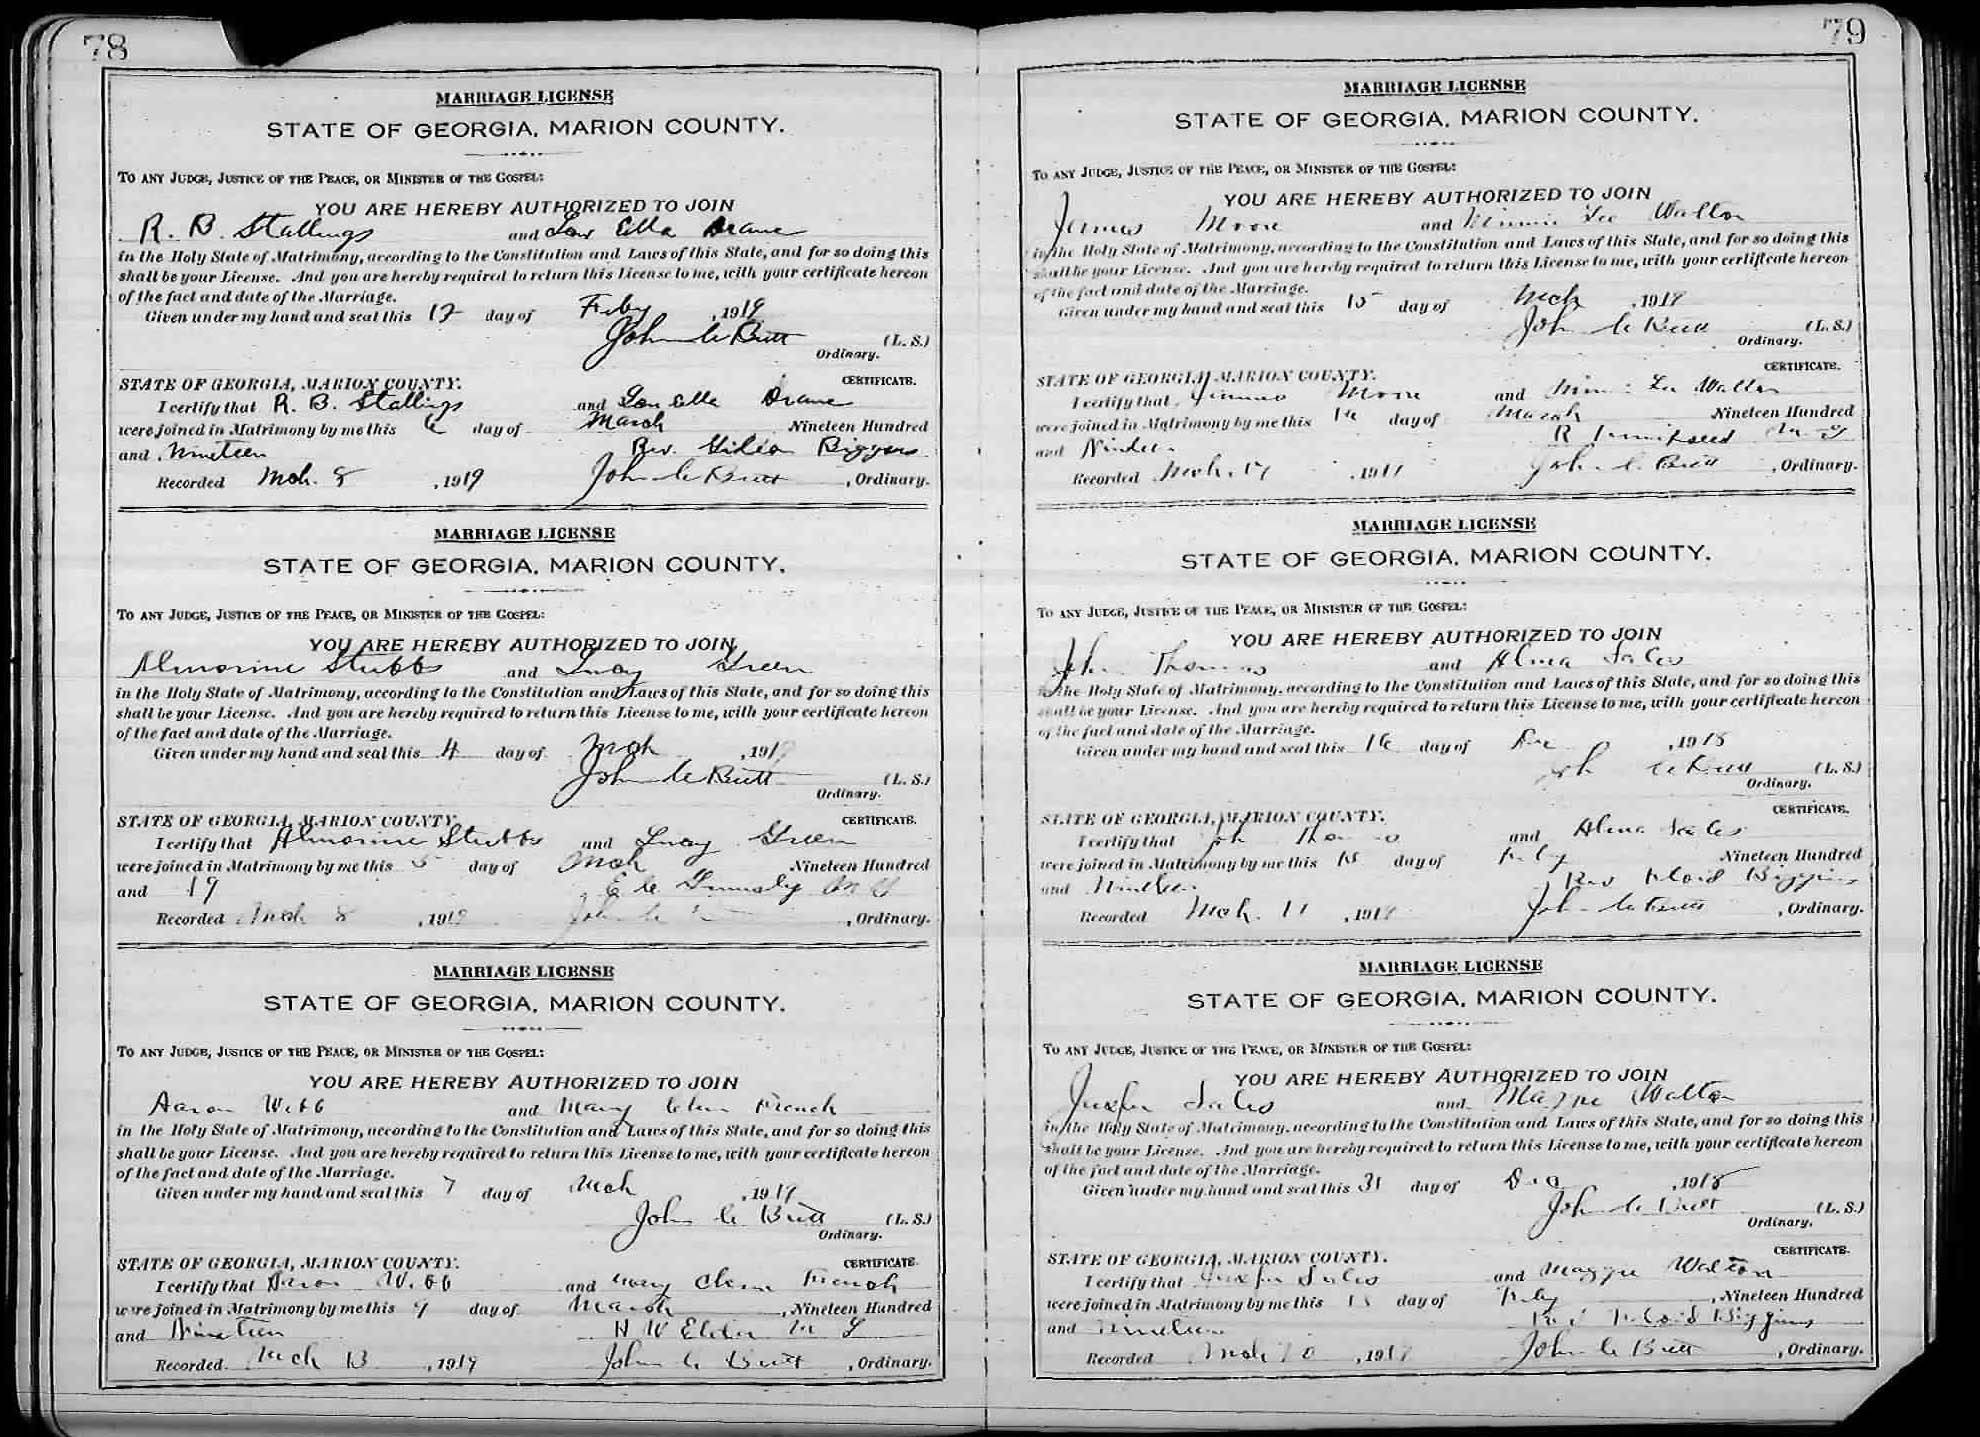 78
MARRIAGE LICENSE
STATE OF GEORGIA, MARION COUNTY.
TO ANY JUDGE, JUSTICE OF THE PEACE, OR MINISTER OF THE GOSPEL:
YOU ARE HEREBY AUTHORIZED TO JOIN
R. B. Stallings and Lou Ella Drane
in the Holy State of Matrimony, according to the Constitution and Laws of this State, and for so doing this
shall be your License. And you are hereby required to return this License to me, with your certificate hereon
of the fact and date of the Marriage.
Given under my hand and seal this 12 day of Feby, 1919
John C Butt (L. S.)
Ordinary.
STATE OF GEORGIA, MARION COUNTY. CERTIFICATE.
I certify that R. B. Stallings and Lou Ella Drane
were joined in Matrimony by me this 6 day of March Nineteen Hundred
and Nineteen Rev. Gideon Biggers
Recorded Mch. 8, 1919 John C Butt, Ordinary.
MARRIAGE LICENSE
STATE OF GEORGIA, MARION COUNTY.
TO ANY JUDGE, JUSTICE OF THE PEACE, OR MINISTER OF THE GOSPEL:
YOU ARE HEREBY AUTHORIZED TO JOIN
Almorine Stubbs and Lucy Green
in the Holy State of Matrimony, according to the Constitution and Laws of this State, and for so doing this
shall be your License. And you are hereby required to return this License to me, with your certificate hereon
of the fact and date of the Marriage.
Given under my hand and seal this 4 day of Mch, 1919
John C Butt (L. S.)
Ordinary.
STATE OF GEORGIA, MARION COUNTY. CERTIFICATE.
I certify that Almorine Stubbs and Lucy Green
were joined in Matrimony by me this 5 day of Mch Nineteen Hundred
and 19 E C
Recorded Mch 8, 1919 John C, Ordinary.
MARRIAGE LICENSE
STATE OF GEORGIA, MARION COUNTY.
TO ANY JUDGE, JUSTICE OF THE PEACE, OR MINISTER OF THE GOSPEL:
YOU ARE HEREBY AUTHORIZED TO JOIN
Aaron Webb and Mary Clem French
in the Holy State of Matrimony, according to the Constitution and Laws of this State, and for so doing this
shall be your License. And you are hereby required to return this License to me, with your certificate hereon
of the fact and date of the Marriage.
Given under my hand and seal this 7 day of Mch, 1919
John C Butt (L. S.)
Ordinary.
STATE OF GEORGIA, MARION COUNTY. CERTIFICATE.
I certify that Aaron Webb and Mary Clem French
were joined in Matrimony by me this 9 day of March, Nineteen Hundred
and Nineteen H W Elder M G
Recorded Mch 13, 1919 John C Butt, Ordinary.
79
MARRIAGE LICENSE
STATE OF GEORGIA, MARION COUNTY.
TO ANY JUDGE, JUSTICE OF THE PEACE, OR MINISTER OF THE GOSPEL:
YOU ARE HEREBY AUTHORIZED TO JOIN
James Moore and Minnie Lee Walton
in the Holy State of Matrimony, according to the Constitution and Laws of this State, and for so doing this
shall be your License. And you are hereby required to return this License to me, with your certificate hereon
of the fact and date of the Marriage.
Given under my hand and seal this 15 day of Mch, 1919
John C Butt (L. S.)
Ordinary.
STATE OF GEORGIA, MARION COUNTY. CERTIFICATE.
I certify that Moore and Lee Walton
were joined in Matrimony by me this day of March Nineteen Hundred
and R M G
Recorded Mch. 17, 191 John C. Butt, Ordinary.
MARRIAGE LICENSE
STATE OF GEORGIA, MARION COUNTY.
TO ANY JUDGE, JUSTICE OF THE PEACE, OR MINISTER OF THE GOSPEL:
YOU ARE HEREBY AUTHORIZED TO JOIN
John Thomas and Alma Sales
in the Holy State of Matrimony, according to the Constitution and Laws of this State, and for so doing this
shall be your License. And you are hereby required to return this License to me, with your certificate hereon
of the fact and date of the Marriage.
Given under my hand and seal this 16 day of Dec, 1918
John C Butt (L. S.)
Ordinary.
STATE OF GEORGIA, MARION COUNTY. CERTIFICATE.
I certify that John Thomas and Alma Sales
were joined in Matrimony by me this day of Feby Nineteen Hundred
and Nineteen Rev Biggins
Recorded Mch. 11, 1919 John C Butt, Ordinary.
MARRIAGE LICENSE
STATE OF GEORGIA, MARION COUNTY.
TO ANY JUDGE, JUSTICE OF THE PEACE, OR MINISTER OF THE GOSPEL:
YOU ARE HEREBY AUTHORIZED TO JOIN
Sales and Maggie Walton
in the Holy State of Matrimony, according to the Constitution and Laws of this State, and for so doing this
shall be your License. And you are hereby required to return this License to me, with your certificate hereon
of the fact and date of the Marriage.
Given under my hand and seal this 31 day of Dec, 1918
John C Butt (L. S.)
Ordinary.
STATE OF GEORGIA, MARION COUNTY. CERTIFICATE.
I certify that Sales and Maggie Walton
were joined in Matrimony by me this day of Feby, Nineteen Hundred
and Nineteen Biggins
Recorded Mch, 1919 John C Butt, Ordinary.